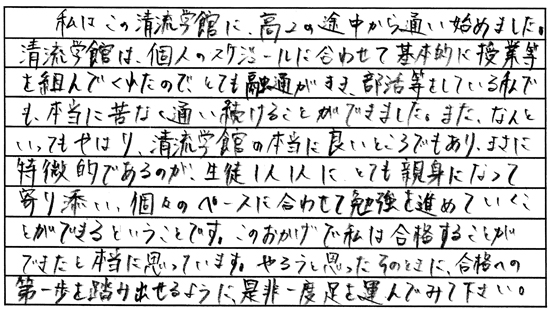 私はこの清流学館に、高2の途中から通い始めました。
清流学館は、個人のスケジュールに合わせて基本的に授業等
を組んでくれたので、とても融通がきき、部活等をしている私で
も、本当に苦なく通い続けることができました。また、なんと
いってもやはり、清流学館の本当に良いところでもあり、まさに
特徴的であるのが、生徒1人1人に、とても親身になって
寄り添い、個々のペースに合わせて勉強を進めていくこ
とができるということです。このおかげで私は合格することが
できたと本当に思っています。やろうと思ったそのときに、合格への
第一歩を踏み出せるように、是非一度足を運んでみて下さい。